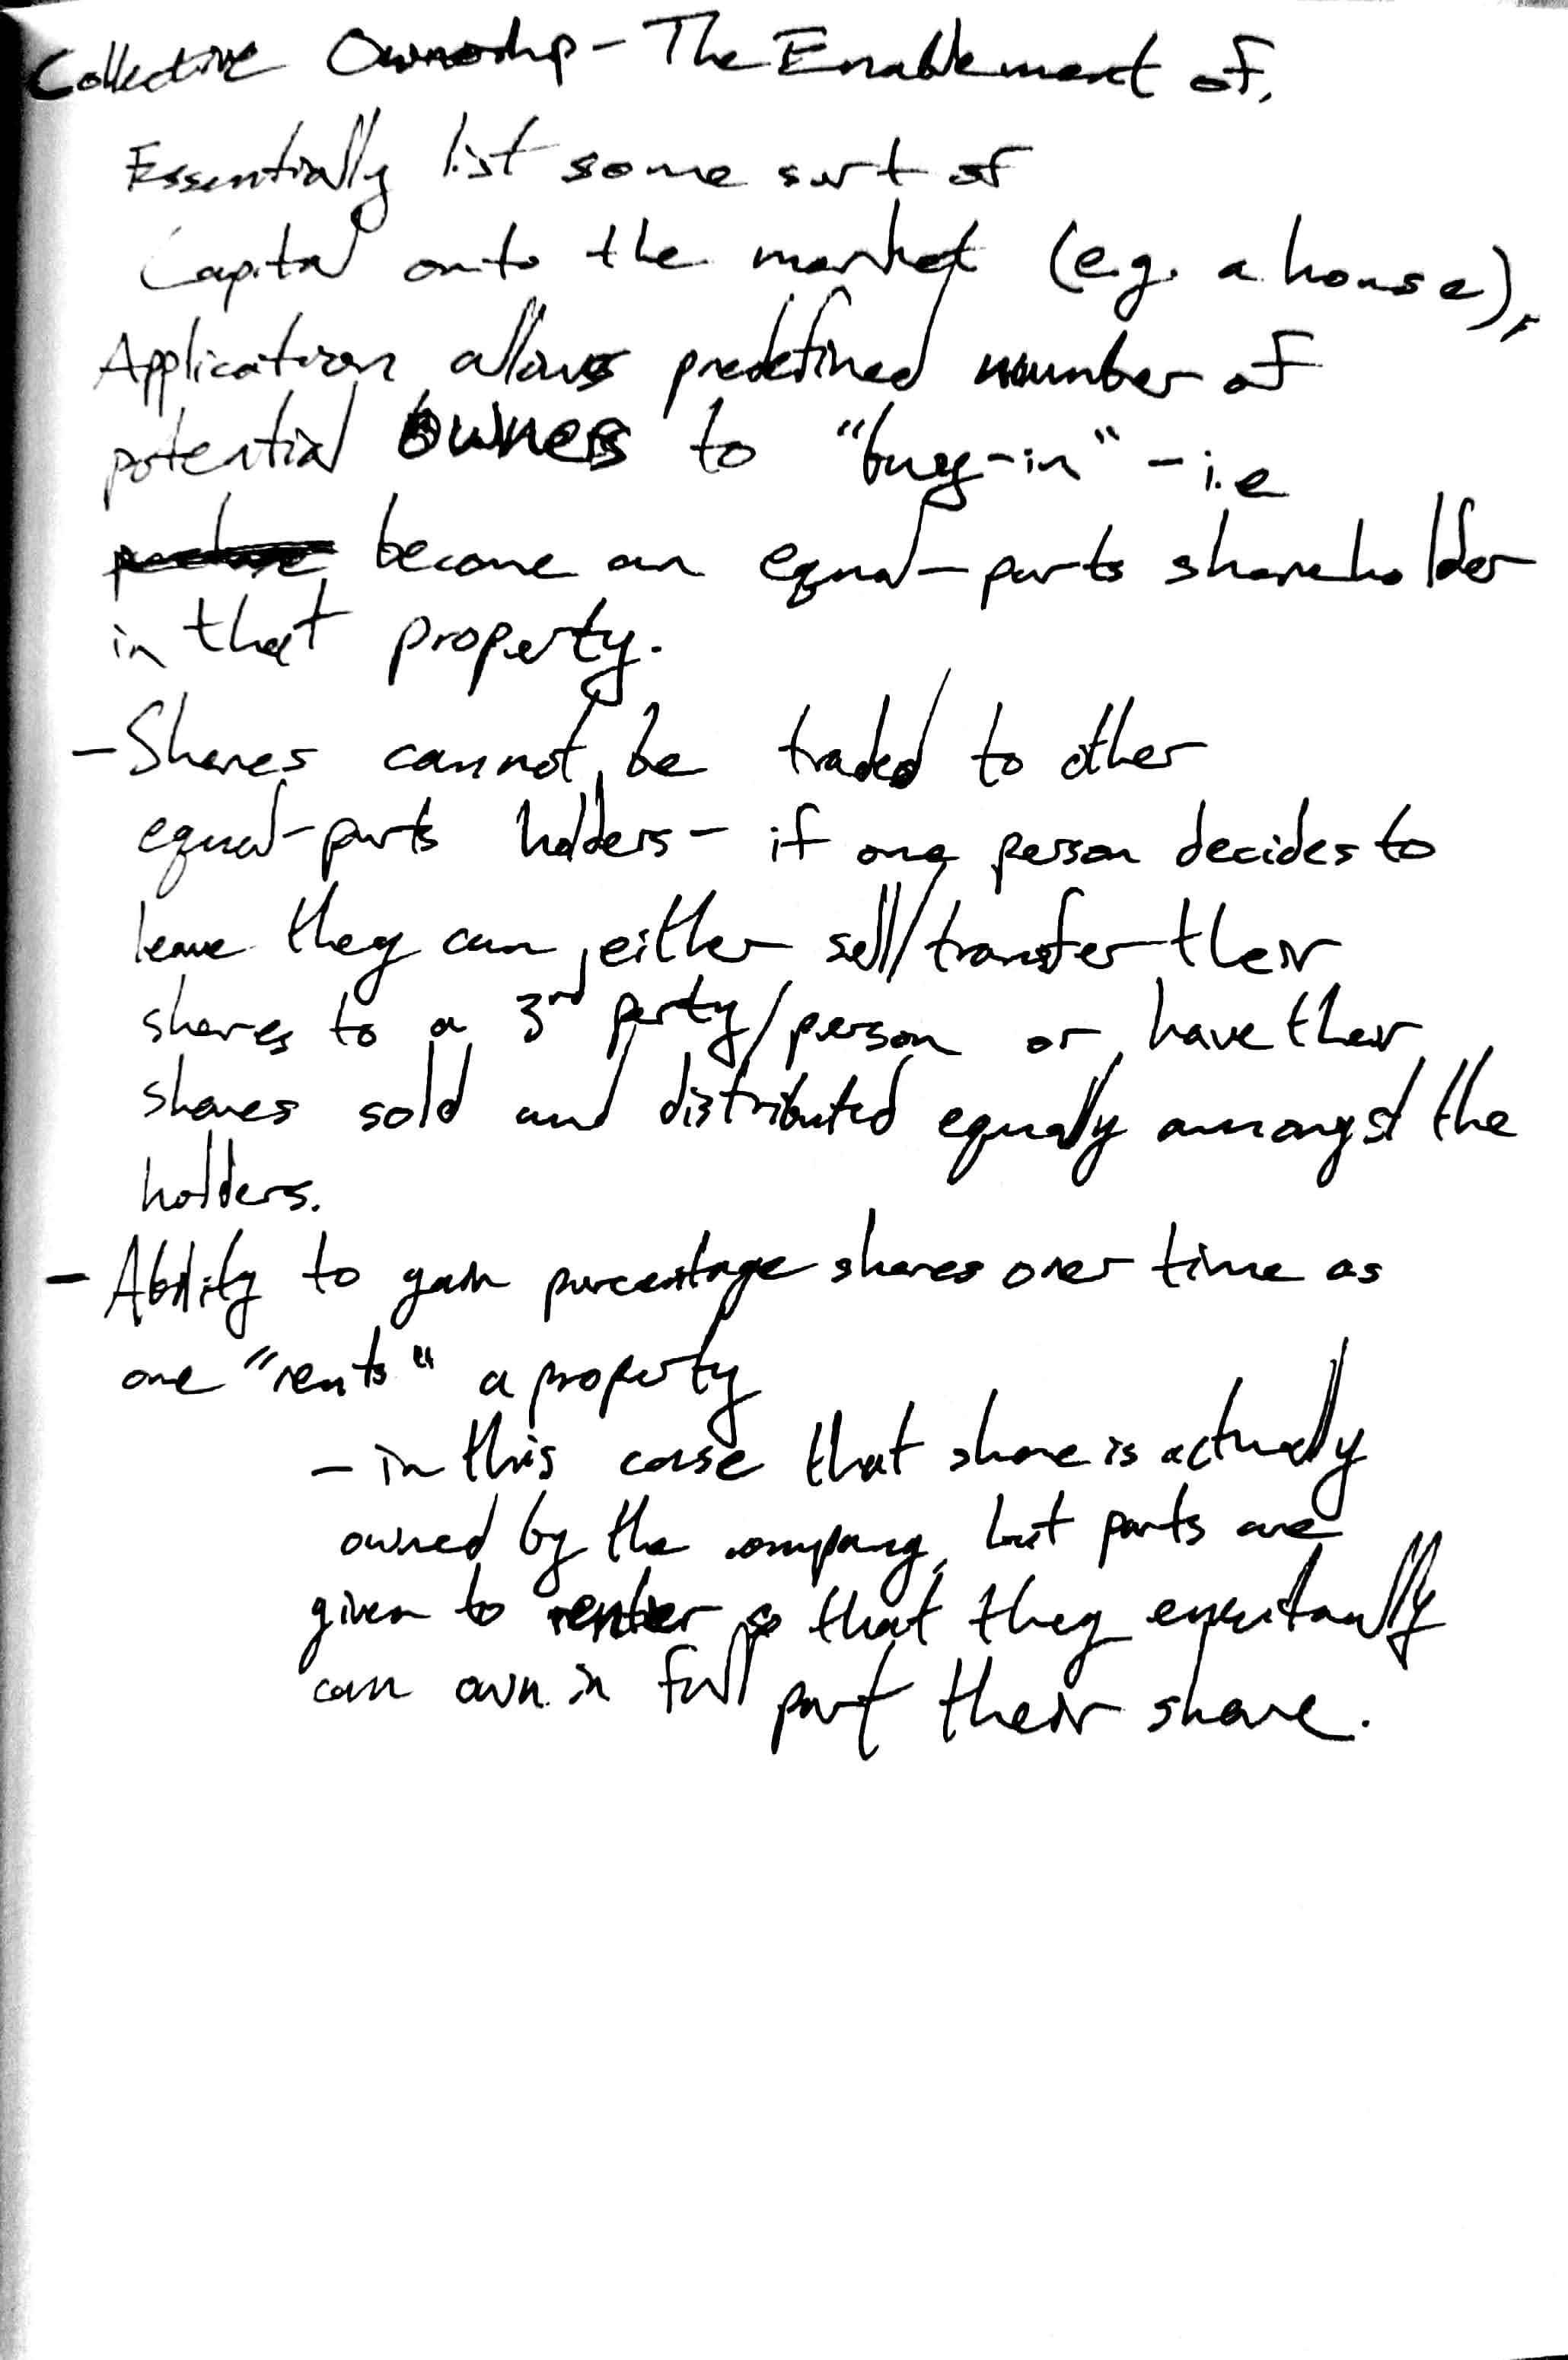 Collective Ownership - The Enablement of.
Essentially list some sort of
Capital onto the market (e.g. a house),
Application allows predefined number of
potential owners to "buy-in" - i.e
become an equal-parts shareholder
in that property.
- Shares cannot be traded to other
equal-parts holders - if one person decides to
leave they can either sell/transfer their
shares to a 3rd party/person or have their
shares sold and distributed equally amongst the
holders.
- Ability to gain percentage shares over time as
one "rents" a property
- in this case that share is actually
owned by the company, but parts are
given to renter so that they eventually
can own in full part their share.